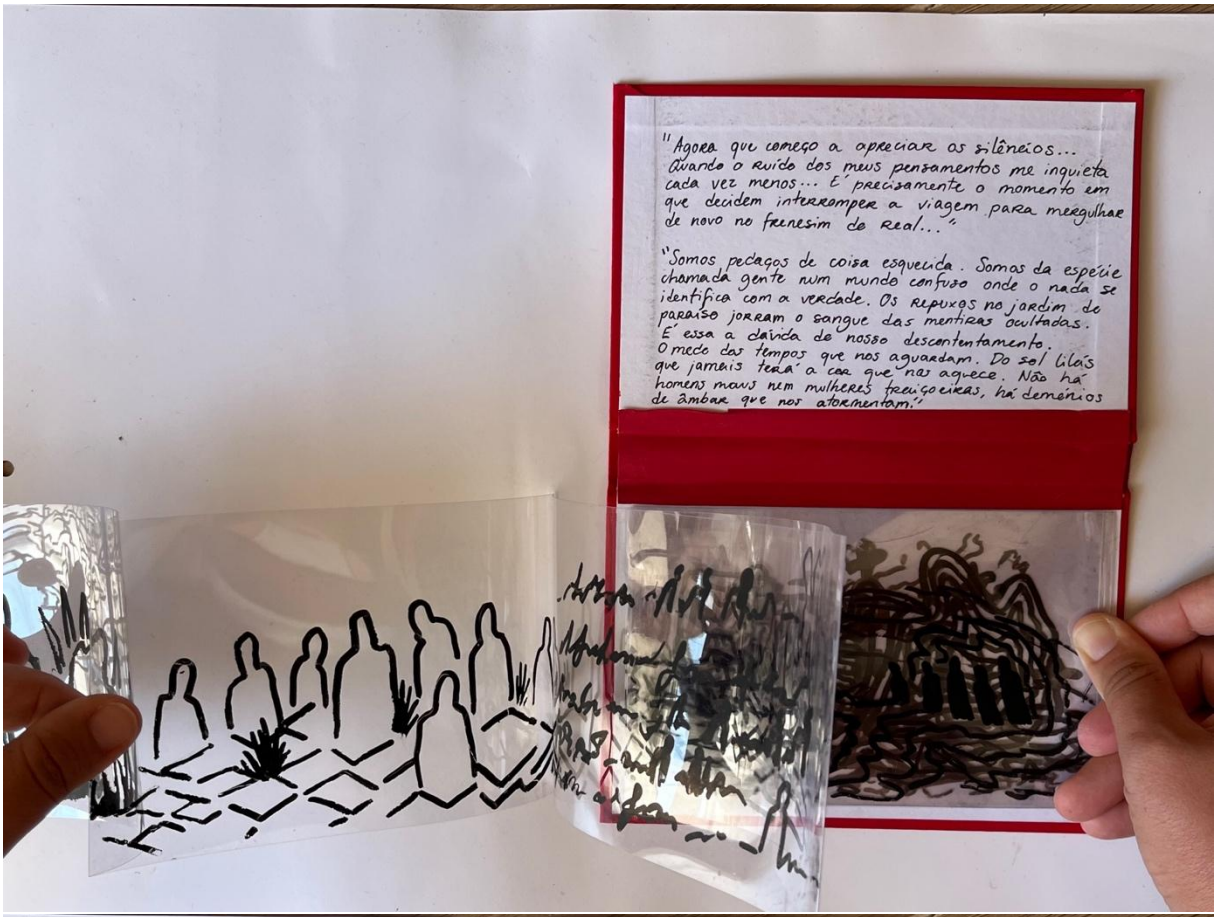 "Agora que começo a apreciar os silêncios...
Quando o ruído dos meus pensamentos me inquieta
cada vez menos... É precisamente o momento em
que decidem interromper a viagem para mergulhar
de novo no frenesim do real..."
"Somos pedaços de coisa esquecida. Somos da espécie
chamada gente num mundo confuso onde o nada se
identifica com a verdade. Os repuxos no jardim do
paraíso jorram o sangue das mentiras ocultadas.
É essa a dávida do nosso descontentamento.
O medo dos tempos que nos aguardam. Do sol lilás
que jamais terá a cor que nos aquece. Não há
homens maus nem mulheres traiçoeiras, há demónios
de âmbar que nos atormentam."